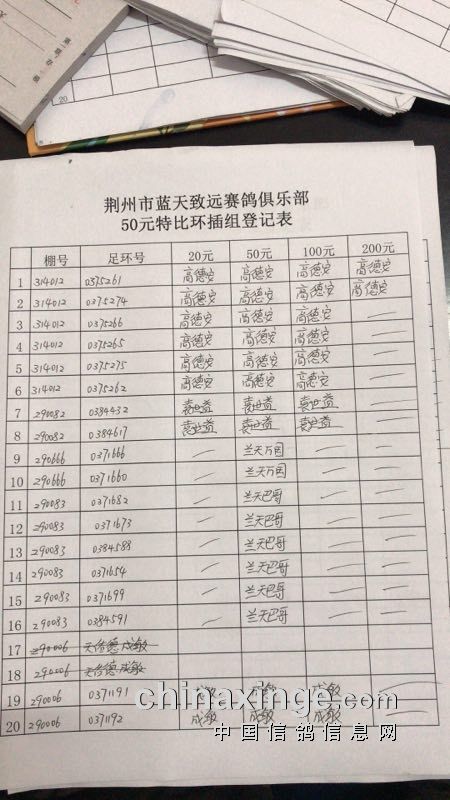 20
荆州市蓝天致远赛鸽俱乐部
50元特比环插组登记表
棚号 足环号 20元 50元 100元 200元
1 314012 0375261 高德安 高德安 高德安 高德安
2 314012 0375274 高德安 高德安 高德安 高德安
3 314012 0375266 高德安 高德安 高德安 —
4 314012 0375265 高德安 高德安 高德安 —
5 314012 0375275 高德安 高德安 高德安 —
6 314012 0375262 高德安 高德安 高德安 —
7 290082 0384432 —
8 290082 0384617 —
9 290666 0371666 — 兰天万国 — —
10 290666 0371660 — 兰天万国 — —
11 290083 0371682 — 兰天巴哥 — —
12 290083 0371673 — 兰天巴哥 — —
13 290083 0384588 — 兰天巴哥 — —
14 290083 0371654 — 兰天巴哥 — —
15 290083 0371699 — 兰天巴哥 — —
16 290083 0384591 — 兰天巴哥 — —
17 290006 成敏
18 290006 成敏
19 290006 0371191 成敏 成敏 成敏 —
20 290006 0371192 成敏 成敏 成敏 —
chinaxinge.com
中国信鸽信息网